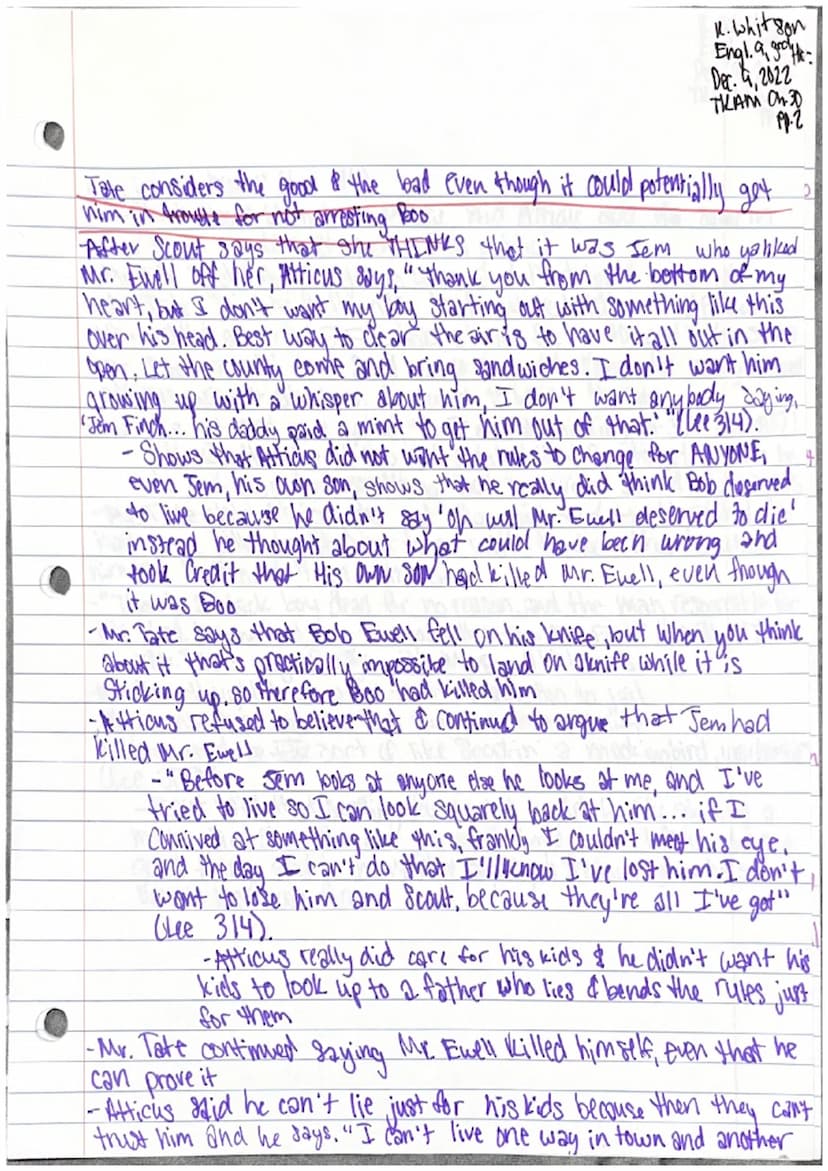 K. Whitson
Engl. 9, 3rd Hr.
Dec. 4, 2022
TKAM Ch 30
pp. 2
Tate considers the good & the bad even though it could potentially get
him in trouble for not arresting Boo
After Scout says that she THINKS that it was Jem who yanked
Mr. Ewell off her, Atticus says, "thank you from the bottom of my
heart, but I don't want my boy starting out with something like this
over his head. Best way to clear the air is to have it all out in the
open, Let the county come and bring sandwiches. I don't want him
growing up with a whisper about him, I don't want anybody saying,
'Jem Finch... his daddy paid a mint to get him out of that.' "(Lee 314).
- Shows that Atticus did not want the rules to change for ANYONE,
even Jem, his own son, shows that he really did think Bob deserved
to live because he didn't say 'oh well Mr. Ewell deserved to die'
instead he thought about what could have been wrong and
took credit that HIS OWN SON had killed Mr. Ewell, even though
it was Boo
- Mr. Tate says that Bob Ewell fell on his knife, but when you think
about it that's practically impossible to land on a knife while it is
sticking up, so therefore Boo had killed him
- Atticus refused to believe that & continued to argue that Jem had
killed Mr. Ewell
- "Before Jem looks at anyone else he looks at me, and I've
tried to live so I can look squarely back at him... if I
connived at something like this, frankly I couldn't meet his eye,
and the day I can't do that I'll know I've lost him. I don't
want to lose him and Scout, because they're all I've got"
(Lee 314).
- Atticus really did care for his kids & he didn't want his
kids to look up to a father who lies & bends the rules just
for them
- Mr. Tate continued saying Mr. Ewell killed himself, even that he
can prove it
- Atticus said he can't lie just for his kids because then they can't
trust him and he says. "I can't live one way in town and another